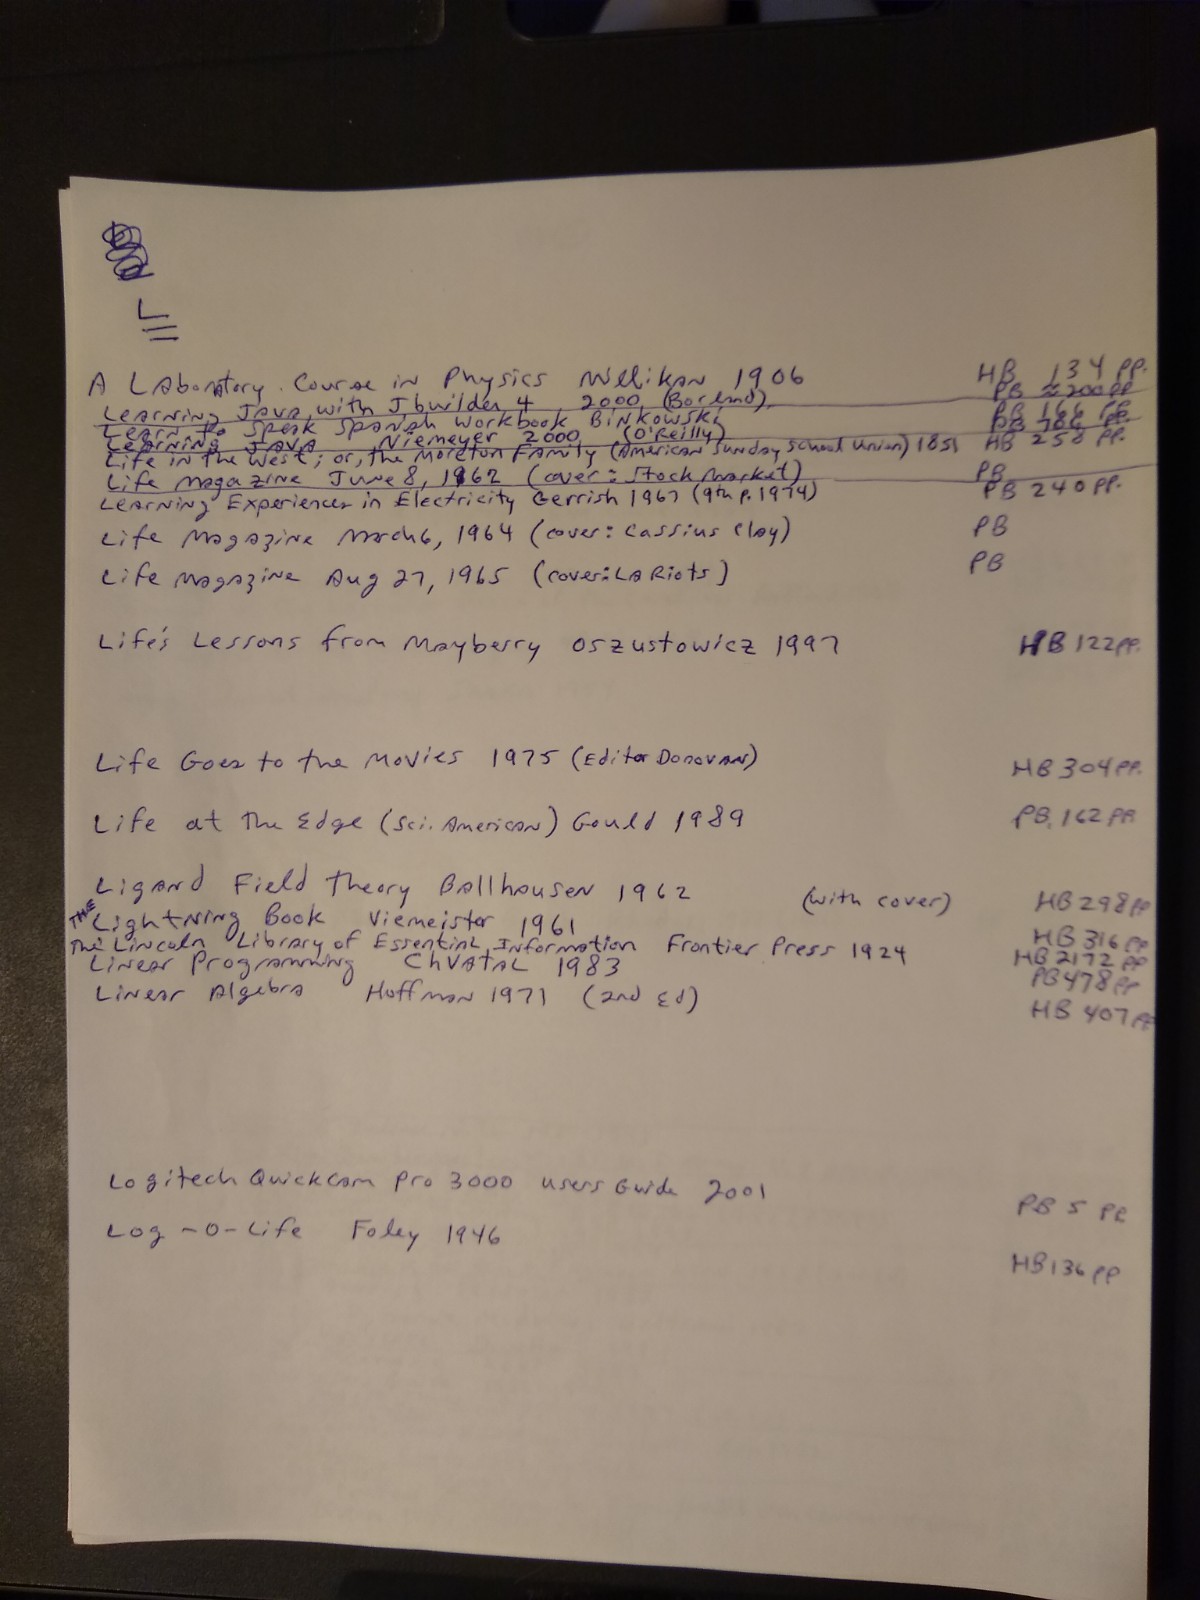 L
A Laboratory Course in Physics Millikan 1906 HB 134 pp.
Learning Java with Jbuilder 4 2000 (Borland) PB ≈200 pp
Learn to Speak Spanish Workbook Binkowski PB 166 pp.
Learning JAVA Niemeyer 2000 (O'Reilly) PB pp.
Life in the West; or, the Moreton Family (American Sunday School Union) 1851 HB 250 pp.
Life Magazine June 8, 1962 (cover: Stock Market) PB
Learning Experiences in Electricity Gerrish 1967 (9th p. 1974) PB 240 pp.
Life Magazine March 6, 1964 (cover: Cassius Clay) PB
Life Magazine Aug 27, 1965 (cover: LA Riots) PB
Life's Lessons from Mayberry Oszustowicz 1997 HB 122 pp.
Life Goes to the Movies 1975 (Editor Donovan) HB 304 pp.
Life at the Edge (Sci. American) Gould 1989 PB. 162 pp.
Ligand Field Theory Ballhausen 1962 (with cover) HB 298 pp
The Lightning Book Viemeister 1961 HB 316 pp
The Lincoln Library of Essential Information Frontier Press 1924 HB 2172 pp
Linear Programming Chvatal 1983 PB 478 pp
Linear Algebra Hoffman 1971 (2nd Ed) HB 407 pp
Logitech QuickCam Pro 3000 Users Guide 2001 PB 5 pp.
Log-O-Life Foley 1946 HB 136 pp